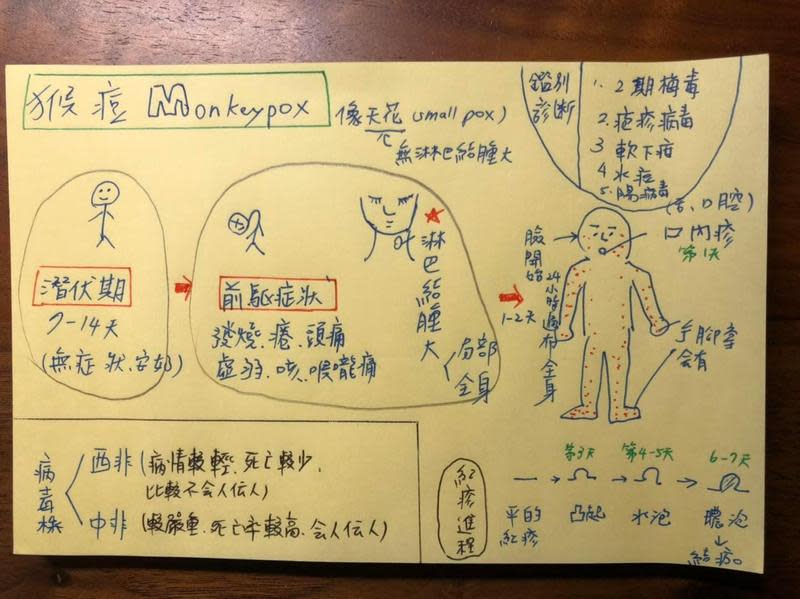 猴痘 Monkeypox
像天花(small pox)
無淋巴結腫大
鑑別
診斷
1. 2期梅毒
2. 疱疹病毒
3 軟下疳
4 水痘
5. 腸病毒
潛伏期
7-14天
(無症狀、安靜)
前驅症狀
發燒、痠、頭痛
虛弱、咳、喉嚨痛
淋巴結腫大
局部
全身
1-2天
臉開始
24小時遍布全身
(舌、口腔)
口內疹
第1天
手腳掌
會有
病毒株
西非(病情較輕、死亡較少、
比較不會人伝人)
中非(較嚴重、死亡率較高、会人伝人)
紅疹進程
平的
紅疹
第3天
凸起
第4-5天
水泡
6-7天
膿泡
結痂